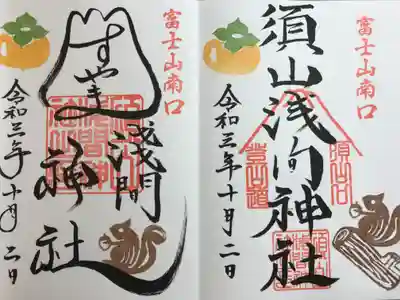 富士山南口
須山浅间神社
須山口
登山道
令和三年十月二日
富士山南口
すやま
浅間
神社
令和三年十月二日